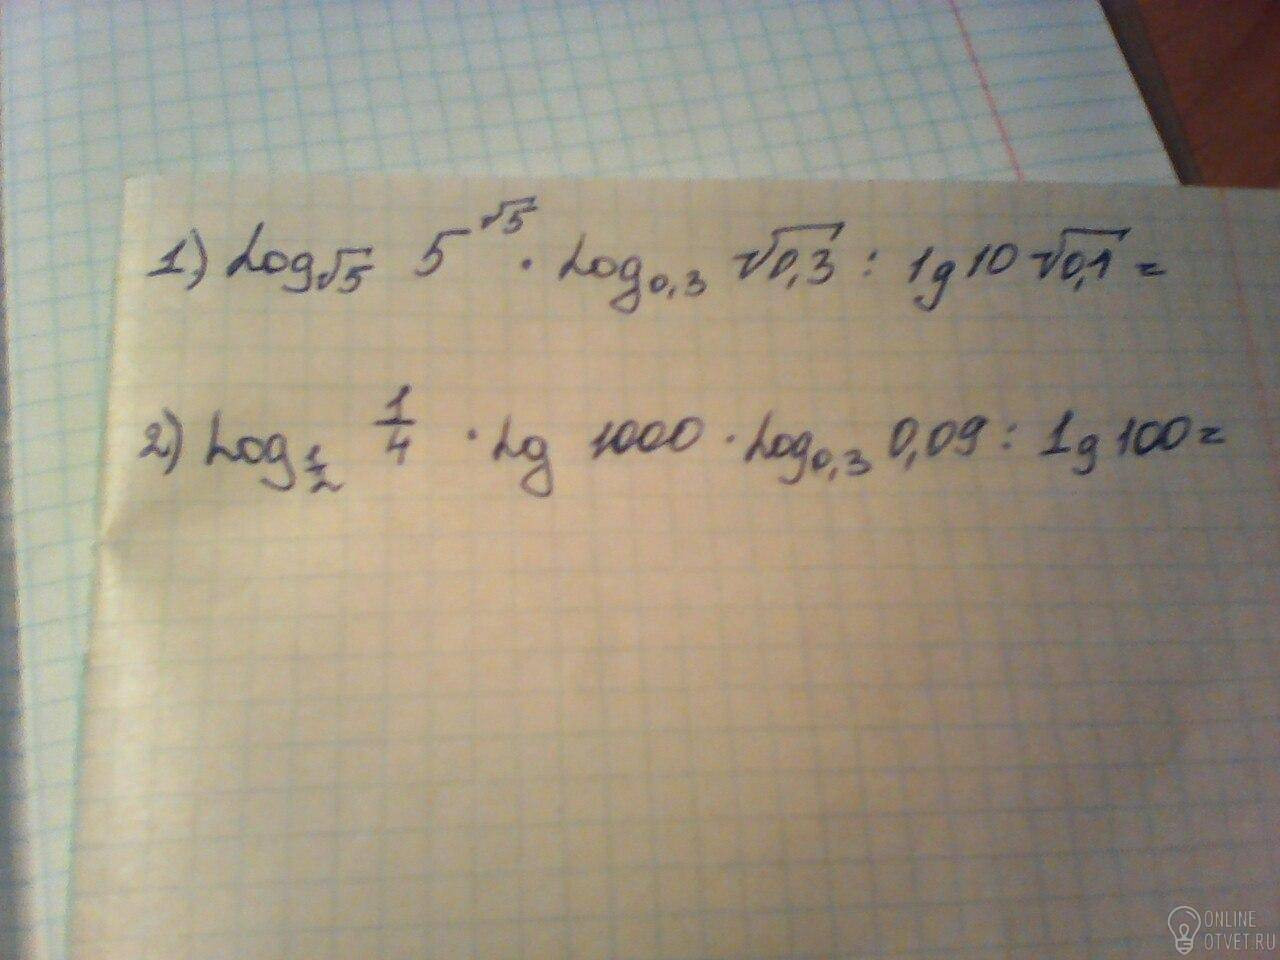 1) Log√5 5^√5 · Log0,3 √0,3 : lg10 √0,1 =
2) Log1/2 1/4 · Lg 1000 · Log0,3 0,09 : lg 100 =
ONLINE
OTVET.RU